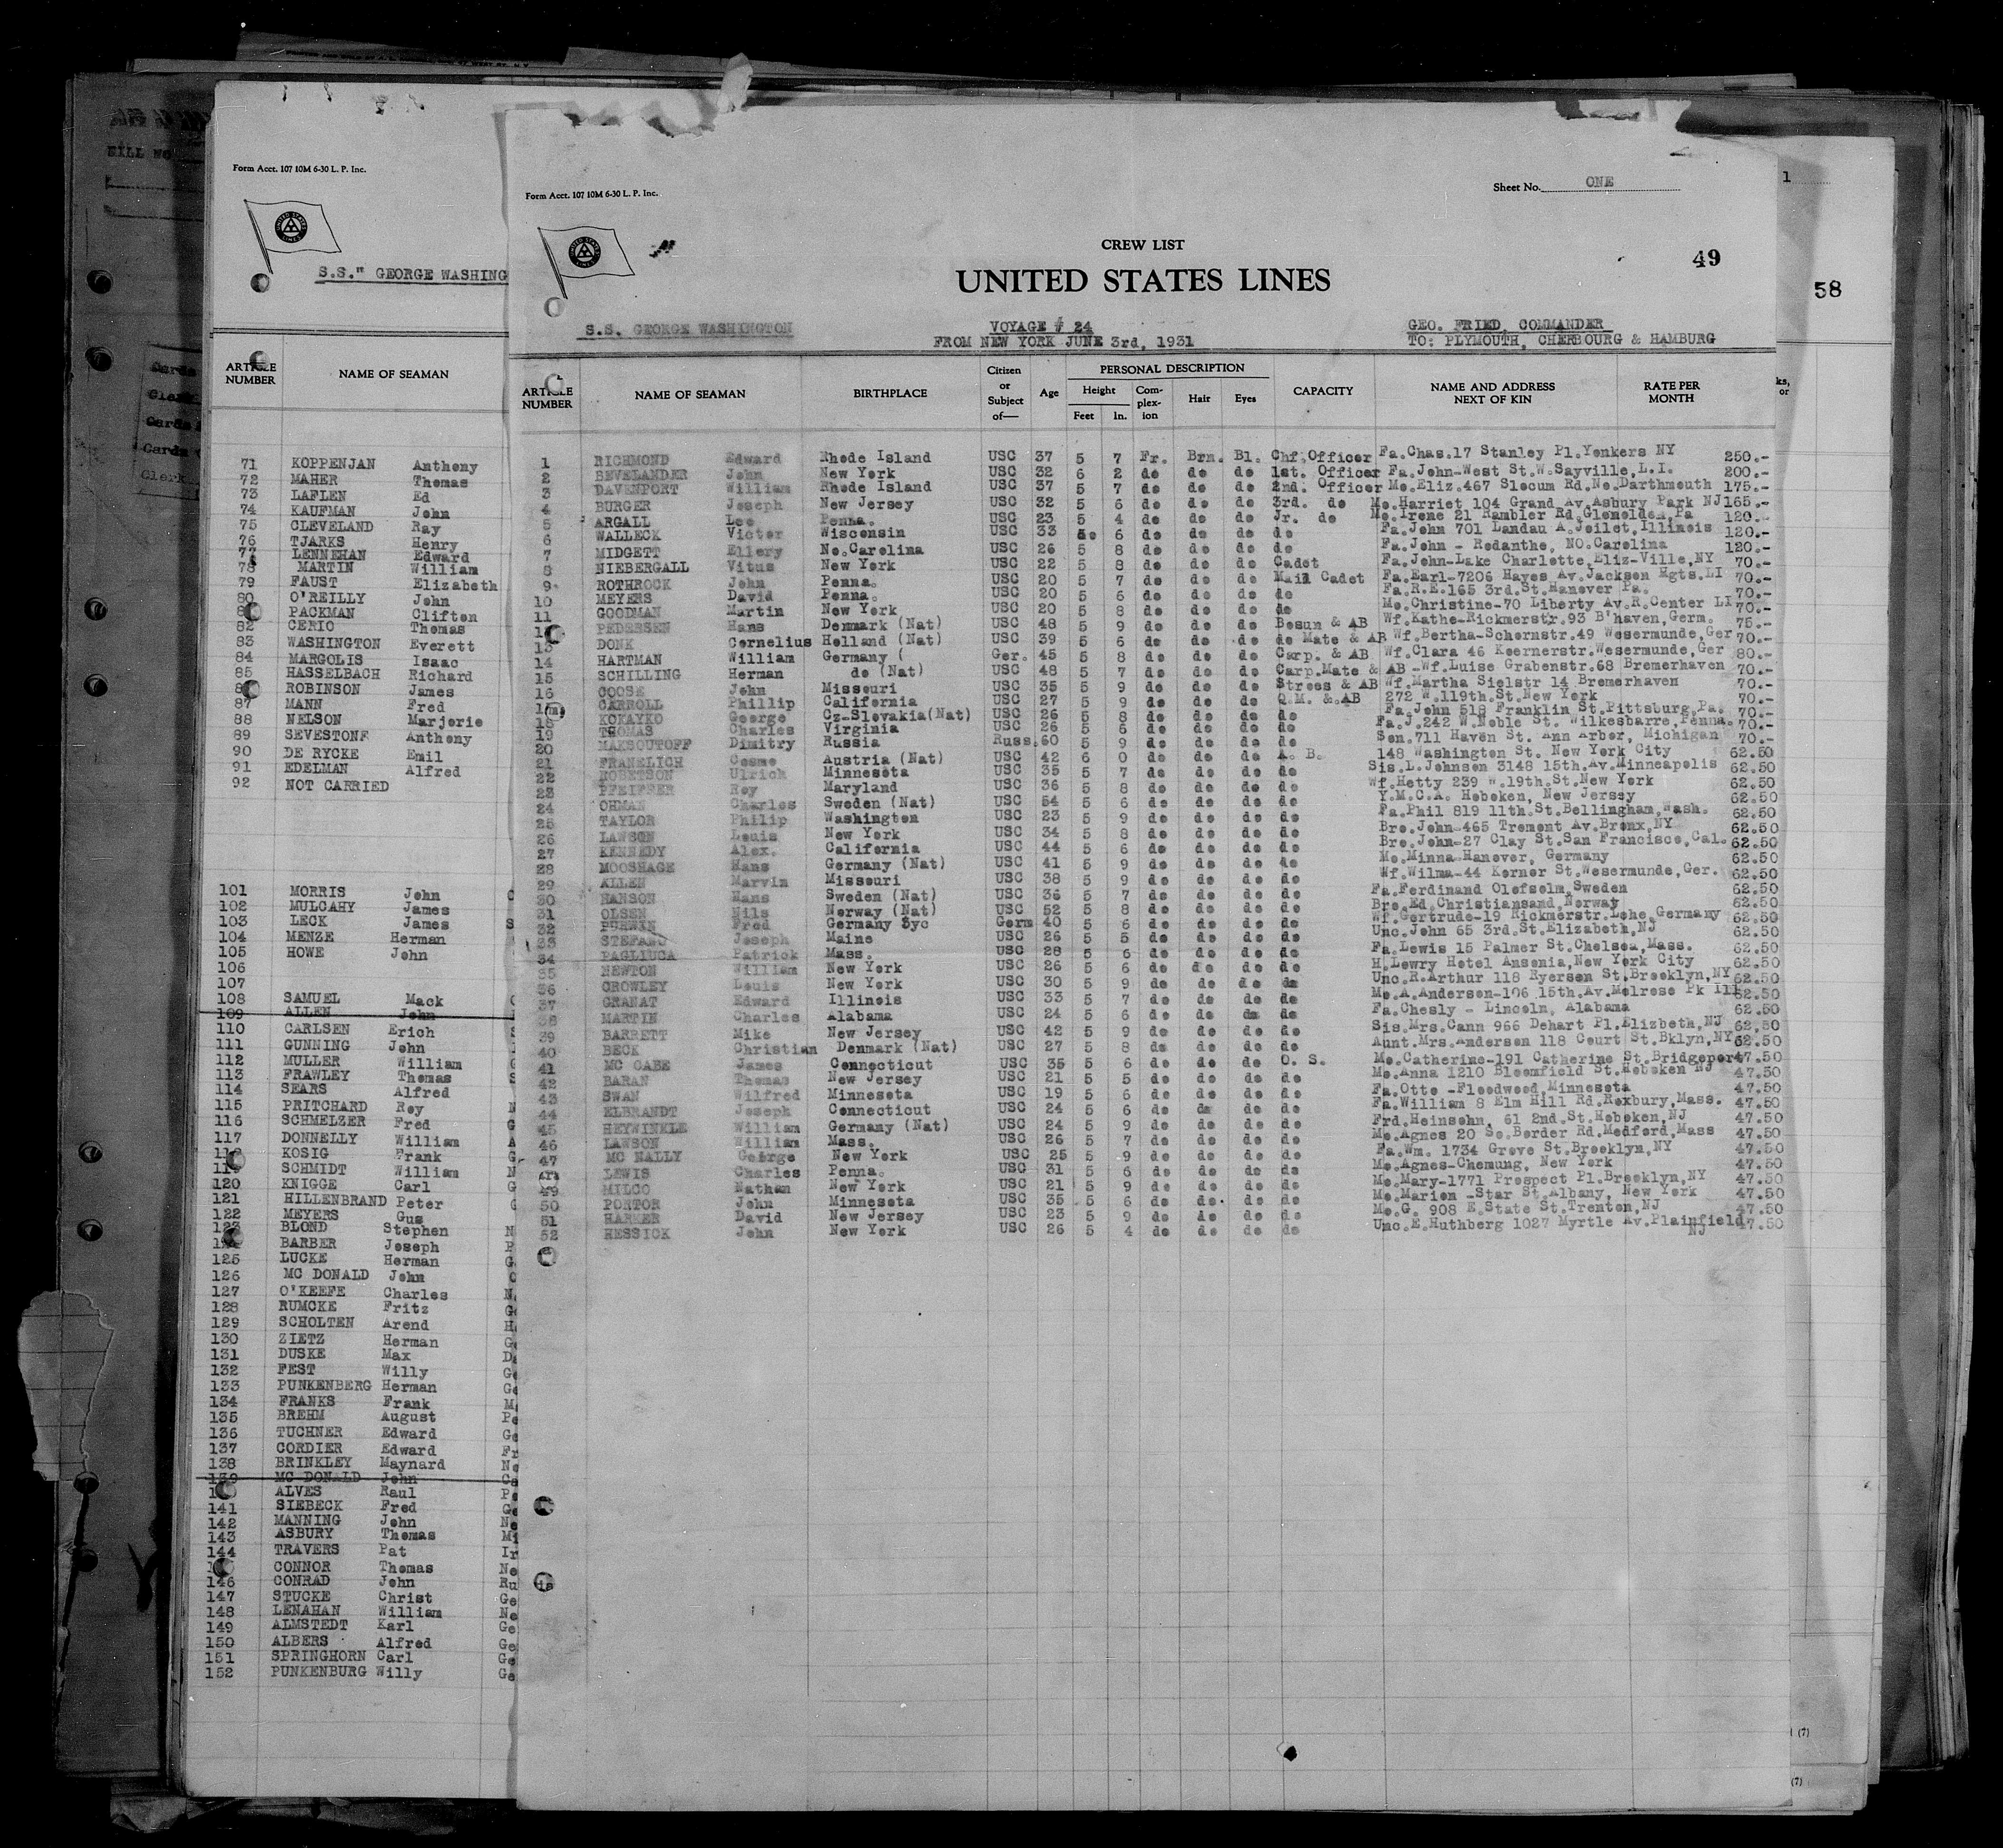 BILL NO
Form Acct. 107 10M 6-30 L. P. Inc.
S.S." GEORGE WASHING
ARTICLE NUMBER NAME OF SEAMAN
71 KOPPENJAN Anthony
72 MAHER Thomas
73 LAFLEN Ed
74 KAUFMAN John
75 CLEVELAND Ray
76 TJARKS Henry
77 LENNEHAN Edward
78 MARTIN William
79 FAUST Elizabeth
80 O'REILLY John
PACKMAN Clifton
82 CERIO Thomas
83 WASHINGTON Everett
84 MARGOLIS Isaac
85 HASSELBACH Richard
ROBINSON James
87 MANN Fred
88 NELSON Marjorie
89 SEVESTONE Anthony
90 DE RYCKE Emil
91 EDELMAN Alfred
92 NOT CARRIED
101 MORRIS John
102 MULCAHY James
103 LECK James
104 MENZE Herman
105 HOWE John
106
107
108 SAMUEL Mack
109 ALLEN John
110 CARLSEN Erich
111 GUNNING John
112 MULLER William
113 FRAWLEY Thomas
114 SEARS Alfred
115 PRITCHARD Roy
116 SCHMELZER Fred
117 DONNELLY William
KOSIG Frank
SCHMIDT William
120 KNIGGE Carl
121 HILLENBRAND Peter
122 MEYERS Gus
123 BLOND Stephen
BARBER Joseph
125 LUCKE Herman
126 MC DONALD John
127 O'KEEFE Charles
128 RUMCKE Fritz
129 SCHOLTEN Arend
130 ZIETZ Herman
131 DUSKE Max
132 FEST Willy
133 PUNKENBERG Herman
134 FRANKS Frank
135 BREHM August
136 TUCHNER Edward
137 CORDIER Edward
138 BRINKLEY Maynard
139 MC DONALD John
ALVES Raul
141 SIEBECK Fred
142 MANNING John
143 ASBURY Thomas
144 TRAVERS Pat
CONNOR Thomas
146 CONRAD John
147 STUCKE Christ
148 LENAHAN William
149 ALMSTEDT Karl
150 ALBERS Alfred
151 SPRINGHORN Carl
152 PUNKENBURG Willy
Form Acct. 107 10M 6-30 L. P. Inc.
Sheet No. ONE
CREW LIST
49
UNITED STATES LINES
58
S.S. GEORGE WASHINGTON VOYAGE # 24 GEO. FRIED, COMMANDER
FROM NEW YORK JUNE 3rd, 1931 TO: PLYMOUTH, CHERBOURG & HAMBURG
ARTICLE NUMBER NAME OF SEAMAN BIRTHPLACE Citizen or Subject of— Age PERSONAL DESCRIPTION Height Feet In. Complexion Hair Eyes CAPACITY NAME AND ADDRESS NEXT OF KIN RATE PER MONTH
1 RICHMOND Edward Rhode Island USC 37 5 7 Fr. Brn. Bl. Chf. Officer Fa.Chas.17 Stanley Pl.Yonkers NY 250.-
2 BEVELANDER John New York USC 32 6 2 do do do 1st. Officer Fa. John-West St.W.Sayville,L.I. 200.-
3 DAVENPORT William Rhode Island USC 37 5 7 do do do 2nd. Officer Mo.Eliz.467 Slocum Rd.No.Darthmouth 175.-
4 BURGER Joseph New Jersey USC 32 5 6 do do do 3rd. do Mo.Harriet 104 Grand Av.Asbury Park NJ 165.-
5 ARGALL Leo Penna. USC 23 5 4 do do do Jr. do Mo.Irene 21 Rambler Rd.Glenolden,Pa 120.-
6 WALLECK Victor Wisconsin USC 33 6 do do do do Fa.John 701 Landau A.Joilet,Illinois 120.-
7 MIDGETT Ellery No.Carolina USC 26 5 8 do do do do Fa.John - Rodanthe, NO.Carolina 120.-
8 NIEBERGALL Vitus New York USC 22 5 8 do do do Cadet Fa.John-Lake Charlotte,Eliz-Ville,NY 70.-
9 ROTHROCK John Penna. USC 20 5 7 do do do Mail Cadet Fa.Earl-7206 Hayes Av.Jackson Hgts.LI 70.-
10 MEYERS David Penna. USC 20 5 6 do do do do Fa.R.E.165 3rd.St.Hanover Pa. 70.-
11 GOODMAN Martin New York USC 20 5 8 do do do do Mo.Christine-70 Liberty Av.R.Center LI 70.-
PEDERSEN Hans Denmark (Nat) USC 48 5 9 do do do Bosun & AB Wf.Kathe-Rickmerstr.93 B'haven,Germ. 75.-
13 DONK Cornelius Holland (Nat) USC 39 5 6 do do do do Mate & AB Wf.Bertha-Schornstr.49 Wesermunde,Ger 70.-
14 HARTMAN William Germany ( Ger. 45 5 8 do do do Carp. & AB Wf.Clara 46 Koernerstr.Wesermunde,Ger 80.-
15 SCHILLING Herman do (Nat) USC 48 5 7 do do do Carp.Mate & AB -Wf.Luise Grabenstr.68 Bremerhaven 70.-
16 COOSE John Missouri USC 35 5 9 do do do Strees & AB Wf.Martha Sielstr 14 Bremerhaven 70.-
CARROLL Phillip California USC 27 5 9 do do do Q.M. & AB 272 W.119th.St.New York 70.-
18 KOKAYKO George Cz-Slovakia(Nat) USC 26 5 8 do do do do Fa.John 518 Franklin St.Pittsburg,Pa. 70.-
19 THOMAS Charles Virginia USC 26 5 6 do do do do Fa.J.242 W.Noble St. Wilkesbarre,Penna. 70.-
20 MAKSOUTOFF Dimitry Russia Russ. 60 5 9 do do do do Son.711 Haven St. Ann Arbor, Michigan 70.-
21 FRANELICH Cosmo Austria (Nat) USC 42 6 0 do do do A. B. 148 Washington St. New York City 62.50
22 ROBETSON Ulrich Minnesota USC 35 5 7 do do do do Sis.L.Johnson 3148 15th.Av.Minneapolis 62.50
23 PFEIFFER Roy Maryland USC 36 5 8 do do do do Wf.Hetty 239 W.19th.St.New York 62.50
24 OHMAN Charles Sweden (Nat) USC 54 5 6 do do do do Y.M.C.A. Hoboken, New Jersey 62.50
25 TAYLOR Philip Washington USC 23 5 9 do do do do Fa.Phil 819 11th.St.Bellingham,Wash. 62.50
26 LAWSON Louis New York USC 34 5 8 do do do do Bro.John-465 Tremont Av.Bronx,NY 62.50
27 KENNEDY Alex. California USC 44 5 6 do do do do Bro.John-27 Clay St.San Francisco,Cal. 62.50
28 MOOSHAGE Hans Germany (Nat) USC 41 5 9 do do do do Mo.Minna-Hanover, Germany 62.50
29 ALLEN Marvin Missouri USC 38 5 9 do do do do Wf.Wilma-44 Korner St.Wesermunde,Ger. 62.50
30 HANSON Hans Sweden (Nat) USC 36 5 7 do do do do Fa.Ferdinand Olofsolm,Sweden 62.50
31 OLSEN Nils Norway (Nat) USC 52 5 8 do do do do Bro.Ed.Christiansand,Norway 62.50
32 Fred Germany Syc Germ 40 5 6 do do do do Wf.Gertrude-19 Rickmerstr.Lehe,Germany 62.50
33 STEFANO Joseph Maine USC 26 5 5 do do do do Unc.John 65 3rd.St.Elizabeth,NJ 62.50
34 PAGLIUCA Patrick Mass. USC 28 5 6 do do do do Fa.Lewis 15 Palmer St.Chelsea,Mass. 62.50
35 NEWTON William New York USC 26 5 6 do do do do H.Lowry Hotel Ansonia,New York City 62.50
36 CROWLEY Louis New York USC 30 5 9 do do do do Unc.R.Arthur 118 Ryerson St.Brooklyn,NY 62.50
37 GRANAT Edward Illinois USC 33 5 7 do do do do Mo.A.Anderson-106 15th.Av.Melrose Pk Ill 62.50
38 MARTIN Charles Alabama USC 24 5 6 do do do do Fa.Chesly - Lincoln, Alabama 62.50
39 BARRETT Mike New Jersey USC 42 5 9 do do do do Sis.Mrs.Cann 966 Dehart Pl.Elizbeth,NJ 62.50
40 BECK Christian Denmark (Nat) USC 27 5 8 do do do do Aunt.Mrs.Andersen 118 Court St.Bklyn,NY 62.50
41 MC CABE James Connecticut USC 35 5 6 do do do O. S. Mo.Catherine-191 Catherine St.Bridgeport 47.50
42 BARAN Thomas New Jersey USC 21 5 5 do do do do Mo.Anna 1210 Bloomfield St.Hoboken NJ 47.50
43 SWAN Wilfred Minnesota USC 19 5 6 do do do do Fa.Otto -Floodwood,Minnesota 47.50
44 ELBRANDT Joseph Connecticut USC 24 5 6 do do do do Fa.William 8 Elm Hill Rd.Roxbury,Mass. 47.50
45 HEYWINKLE William Germany (Nat) USC 24 5 9 do do do do Frd.Heinsohn, 61 2nd.St.Hoboken,NJ 47.50
46 LAWSON William Mass. USC 26 5 7 do do do do Mo.Agnes 20 So.Border Rd.Medford,Mass 47.50
47 MC NALLY George New York USC 25 5 9 do do do do Fa.Wm. 1734 Grove St.Brooklyn,NY 47.50
LEWIS Charles Penna. USC 31 5 6 do do do do Mo.Agnes-Chemung, New York 47.50
49 MILCO Nathan New York USC 21 5 9 do do do do Mo.Mary-1771 Prospect Pl.Brooklyn,NY 47.50
50 PORTOR John Minnesota USC 35 5 6 do do do do Mo.Marion -Star St.Albany, New York 47.50
51 HARKER David New Jersey USC 23 5 9 do do do do Mo.G. 908 E.State St.Trenton,NJ 47.50
52 HESSICK John New York USC 26 5 4 do do do do Unc.E.Huthberg 1027 Myrtle Av.Plainfield NJ 47.50
(7)
(7)